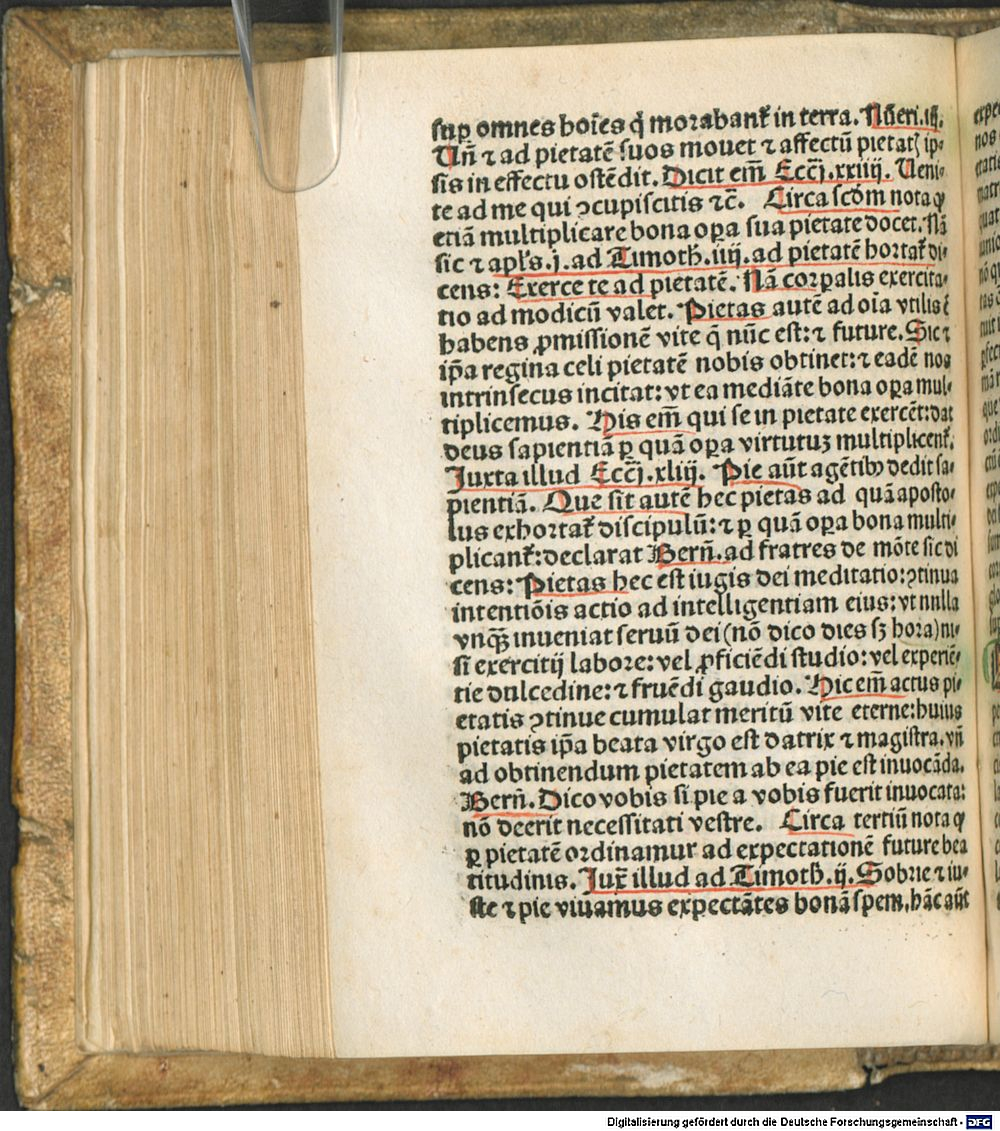 sup̱ omnes hoīes q̄ morabant᷑ in terra. Nūeri.iij.
Un̄ ⁊ ad pietatē suos mouet ⁊ affectū pietatꝭ ip⸗
sis in effectu ostēdit. Dicit em̄ Ecc̄i.xxiiij. Ueni⸗
te ad me qui ꝯcupiscitis ⁊c̄. Circa scd̄m nota ꝙ
etiā multiplicare bona oꝑa sua pietate docet. Nā
sic ⁊ apl's.j.ad Timoth.iiij.ad pietatē hortat᷑ di⸗
cens: Exerce te ad pietatē. Nā corꝑalis exercita⸗
tio ad modicū valet. Pietas autē ad oīa vtilis ē
habens ꝓmissionē vite q̄ nūc est: ⁊ future. Sic ⁊
ip̄a regina celi pietatē nobis obtinet: ⁊ eadē nos
intrinsecus incitat: vt ea mediāte bona oꝑa mul⸗
tiplicemus. His em̄ qui se in pietate exercēt: dat
deus sapientiā ꝑ quā oꝑa virtutuꝫ multiplicent᷑.
Juxta illud Ecc̄i.xliij. Pie aūt agētibꝰ dedit sa⸗
pientiā. Que sit autē hec pietas ad quā aposto⸗
lus exhortat᷑ discipulū: ⁊ ꝑ quā oꝑa bona multi⸗
plicant᷑: declarat Bern̄. ad fratres de mōte sic di
cens: Pietas hec est iugis dei meditatio: ꝯtinua
intentiōis actio ad intelligentiam eius: vt nulla
vnqꝫ̄ inueniat seruū dei (nō dico dies sꝫ hora) ni⸗
si exercitij labore: vel ꝓficiēdi studio: vel experiē⸗
tie dulcedine: ⁊ fruēdi gaudio. Hic em̄ actus pi⸗
etatis ꝯtinue cumulat meritū vite eterne: huius
pietatis ip̄a beata virgo est datrix ⁊ magistra. vn̄
ad obtinendum pietatem ab ea pie est inuocāda.
Bern̄. Dico vobis si pie a vobis fuerit inuocata:
nō deerit necessitati vestre. Circa tertiū nota ꝙ
ꝑ pietatē ordinamur ad expectationē future bea
titudinis. Jux᷑ illud ad Timoth.ij. Sobrie ⁊ iu⸗
ste ⁊ pie viuamus expectātes bonā spem. hāc aūt
Digitalisierung gefördert durch die Deutsche Forschungsgemeinschaft - DFG